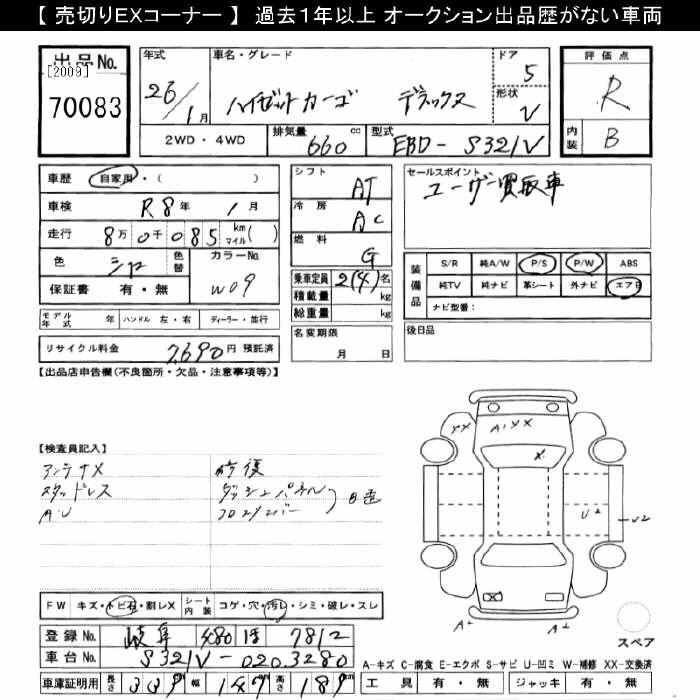 【 売切りEXコーナー 】 過去1年以上 オークション出品歴がない車両
出品No.
[2009]
70083
年式
26/1月
車名・グレード
ハイゼットカーゴ デラックス
ドア
5
形状
V
評価点
R
内装
B
2WD・4WD
排気量
660cc
型式
EBD-S321V
車歴 自家用・( )
車検 R8年 1月
走行 8万0千085 km マイル( )
色 シロ 色替
カラーNo. W09
保証書 有・無
シフト AT
冷房 AC
燃料 G
乗車定員 2(4)名
積載量 kg
総重量 kg
名変期限 月 日
セールスポイント
ユーザー買取車
装備品
S/R 純A/W P/S P/W ABS
純TV 純ナビ 革シート 外ナビ エアB
ナビ型番:
後日品
モデル年式 年 ハンドル 左・右 ディーラー・並行
リサイクル料金 7,690円 預託済
【出品店申告欄(不良箇所・欠品・注意事項等)】
【検査員記入】
アンテナX
スタッドレス
A・U
修復
ダッシュパネル
フロアメンバー
XX
A1 XX
X
U2
U2
X
A2
A2
スペア
FW キズ・トビ石・割レX シート内装 コゲ・穴・汚レ・シミ・破レ・スレ
登録No. 岐阜 480 ほ 7812
車台No. S321V-0203280
車庫証明用 長さ 339 幅 147 高さ 189cm
A-キズ C-腐食 E-エクボ S-サビ U-凹ミ W-補修 XX-交換済
工具 有・無 ジャッキ 有・無